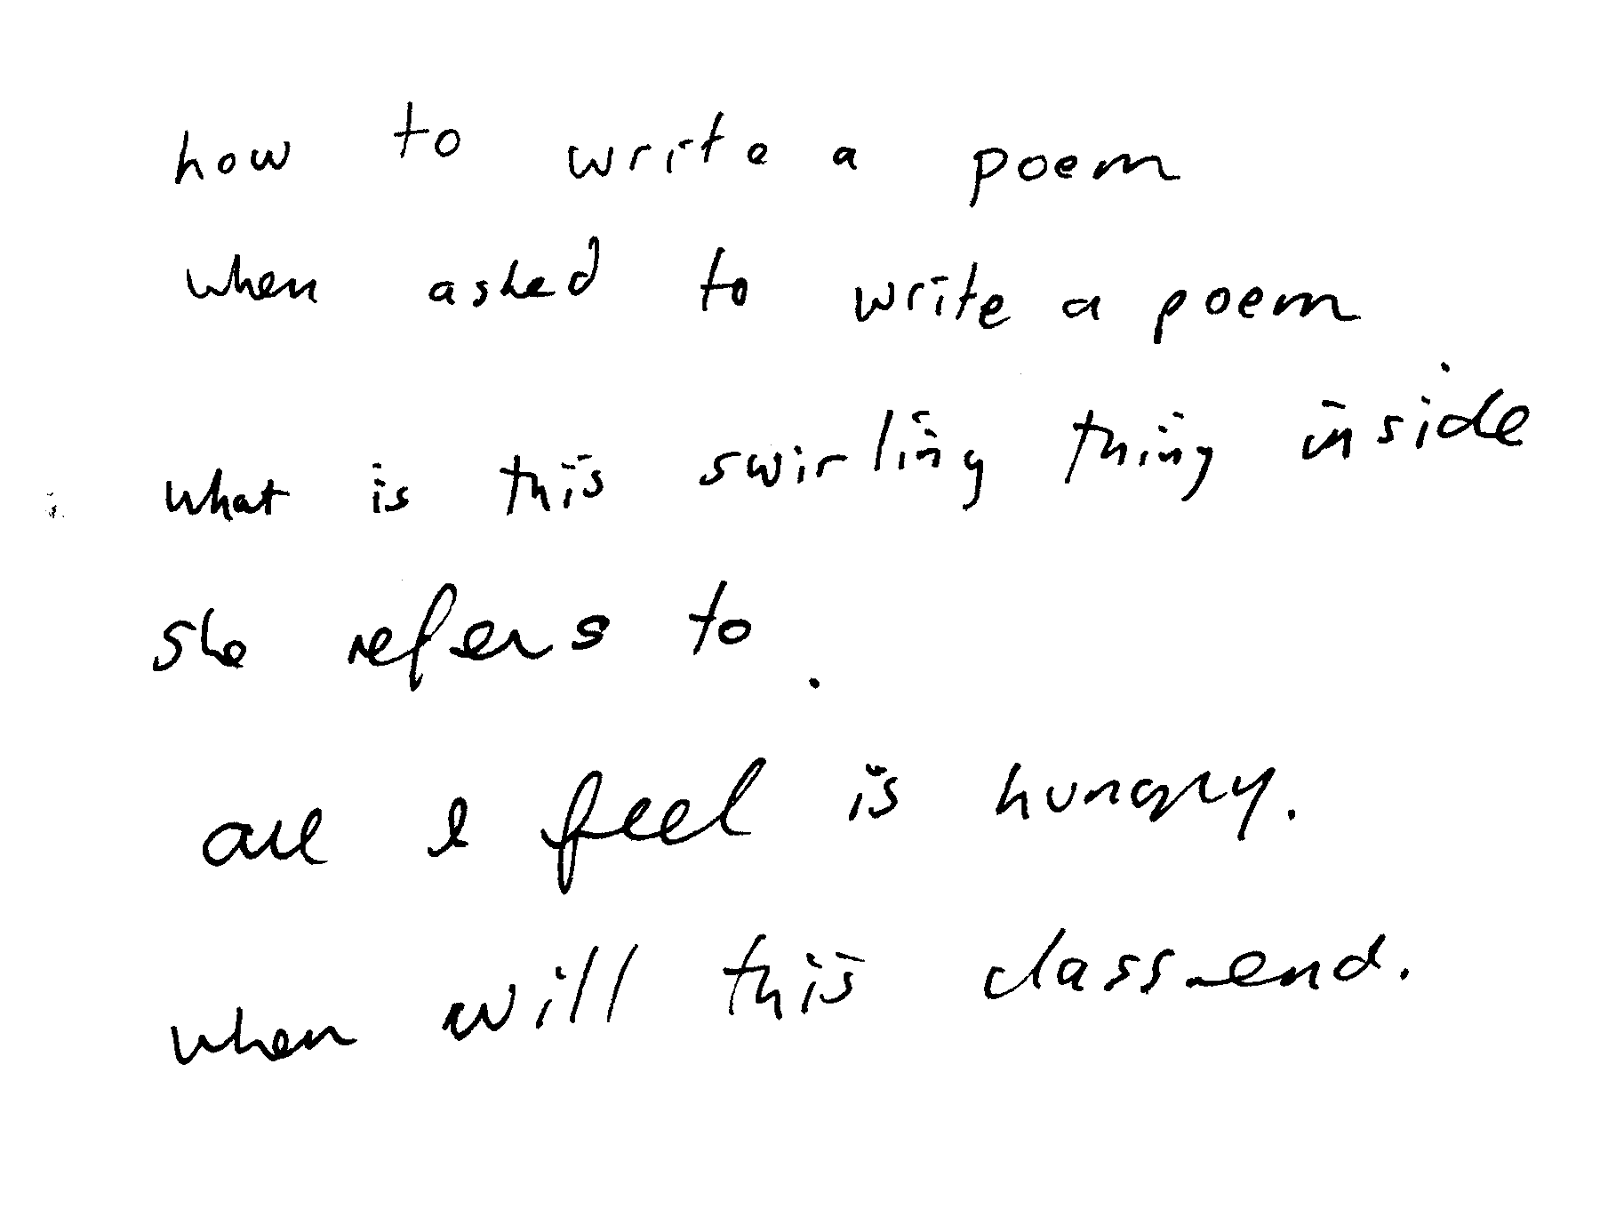 how to write a poem
when asked to write a poem
what is this swirling thing inside
she refers to.
all I feel is hungry.
when will this class end.